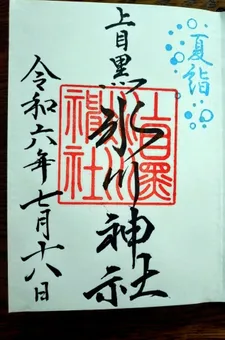 夏詣
上目黒
氷川神社
上目黒氷川神社
令和六年七月十八日